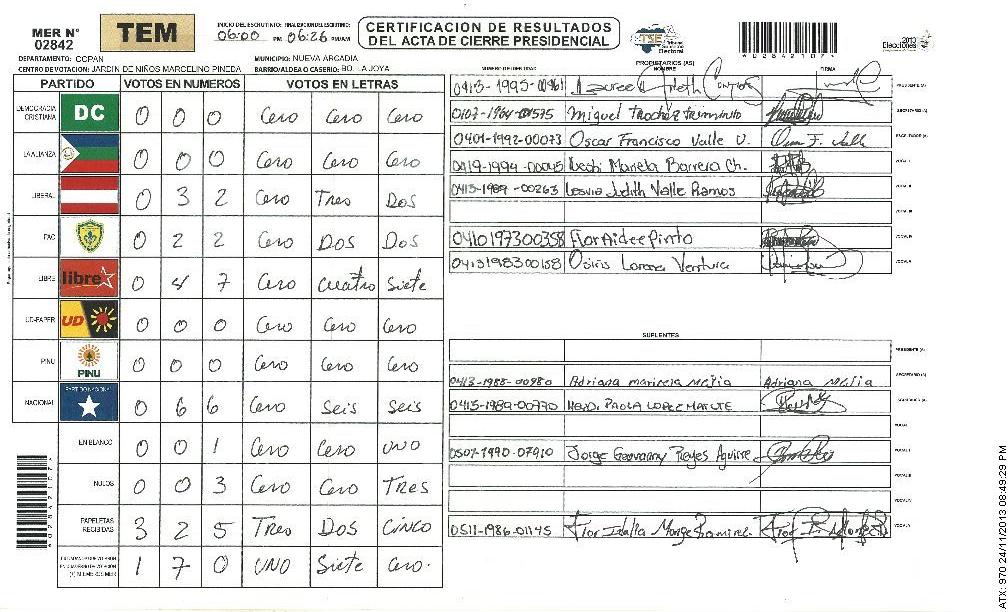 MER N° 02842
TEM
INICIO DEL ESCRUTINIO: FINALIZACION DEL ESCRUTINIO:
06:00 PM 06:26 PM/AM
CERTIFICACION DE RESULTADOS
DEL ACTA DE CIERRE PRESIDENCIAL
TSE Tribunal Supremo Electoral
4028421074
2013 Elecciones
DEPARTAMENTO: COPAN
MUNICIPIO: NUEVA ARCADIA
CENTRO DE VOTACION: JARDIN DE NIÑOS MARCELINO PINEDA
BARRIO/ALDEA O CASERIO: BO. LA JOYA
PARTIDO VOTOS EN NUMEROS VOTOS EN LETRAS
DEMOCRACIA CRISTIANA DC 0 0 0 Cero Cero Cero
LA ALIANZA 0 0 0 Cero Cero Cero
LIBERAL 0 3 2 Cero Tres Dos
PAC 0 2 2 Cero Dos Dos
LIBRE libre 0 4 7 Cero Cuatro Siete
UD-FAPER UD 0 0 0 Cero Cero Cero
PINU PINU 0 0 0 Cero Cero Cero
NACIONAL PARTIDO NACIONAL 0 6 6 Cero Seis Seis
EN BLANCO 0 0 1 Cero Cero UNO
NULOS 0 0 3 Cero Cero TRES
PAPELETAS RECIBIDAS 3 2 5 Tres DOS CINCO
1 7 0 UNO Siete Cero.
PROPIETARIOS (AS)
NUMERO DE IDENTIDAD NOMBRE FIRMA
0413-1995-00961 PRESIDENTE (A)
0107-1964-01575 Miguel SECRETARIO (A)
0401-1992-00073 Oscar Francisco Valle V. ESCRUTADOR (A)
0419-1994-00045 Mariela Barrera Ch. VOCAL I
0413-1989-00263 Lesvia Judith Valle Ramos VOCAL II
VOCAL III
0410197300358 Flor Aidee Pinto VOCAL IV
0413198300158 Osiris Lorena Ventura VOCAL V
SUPLENTES
PRESIDENTE (A)
0413-1988-00980 Adriana maricela Mejia Adriana Mejia SECRETARIO (A)
0413-1989-00770 PAOLA LOPEZ ESCRUTADOR (A)
VOCAL I
0507-1990-07910 Jorge Geovanny Reyes Aguirre VOCAL II
VOCAL III
VOCAL IV
0511-1986-01145 Flor Idalia Monge Ramirez VOCAL V
4028421074
ATX: 970 24/11/2013 08:49:29 PM